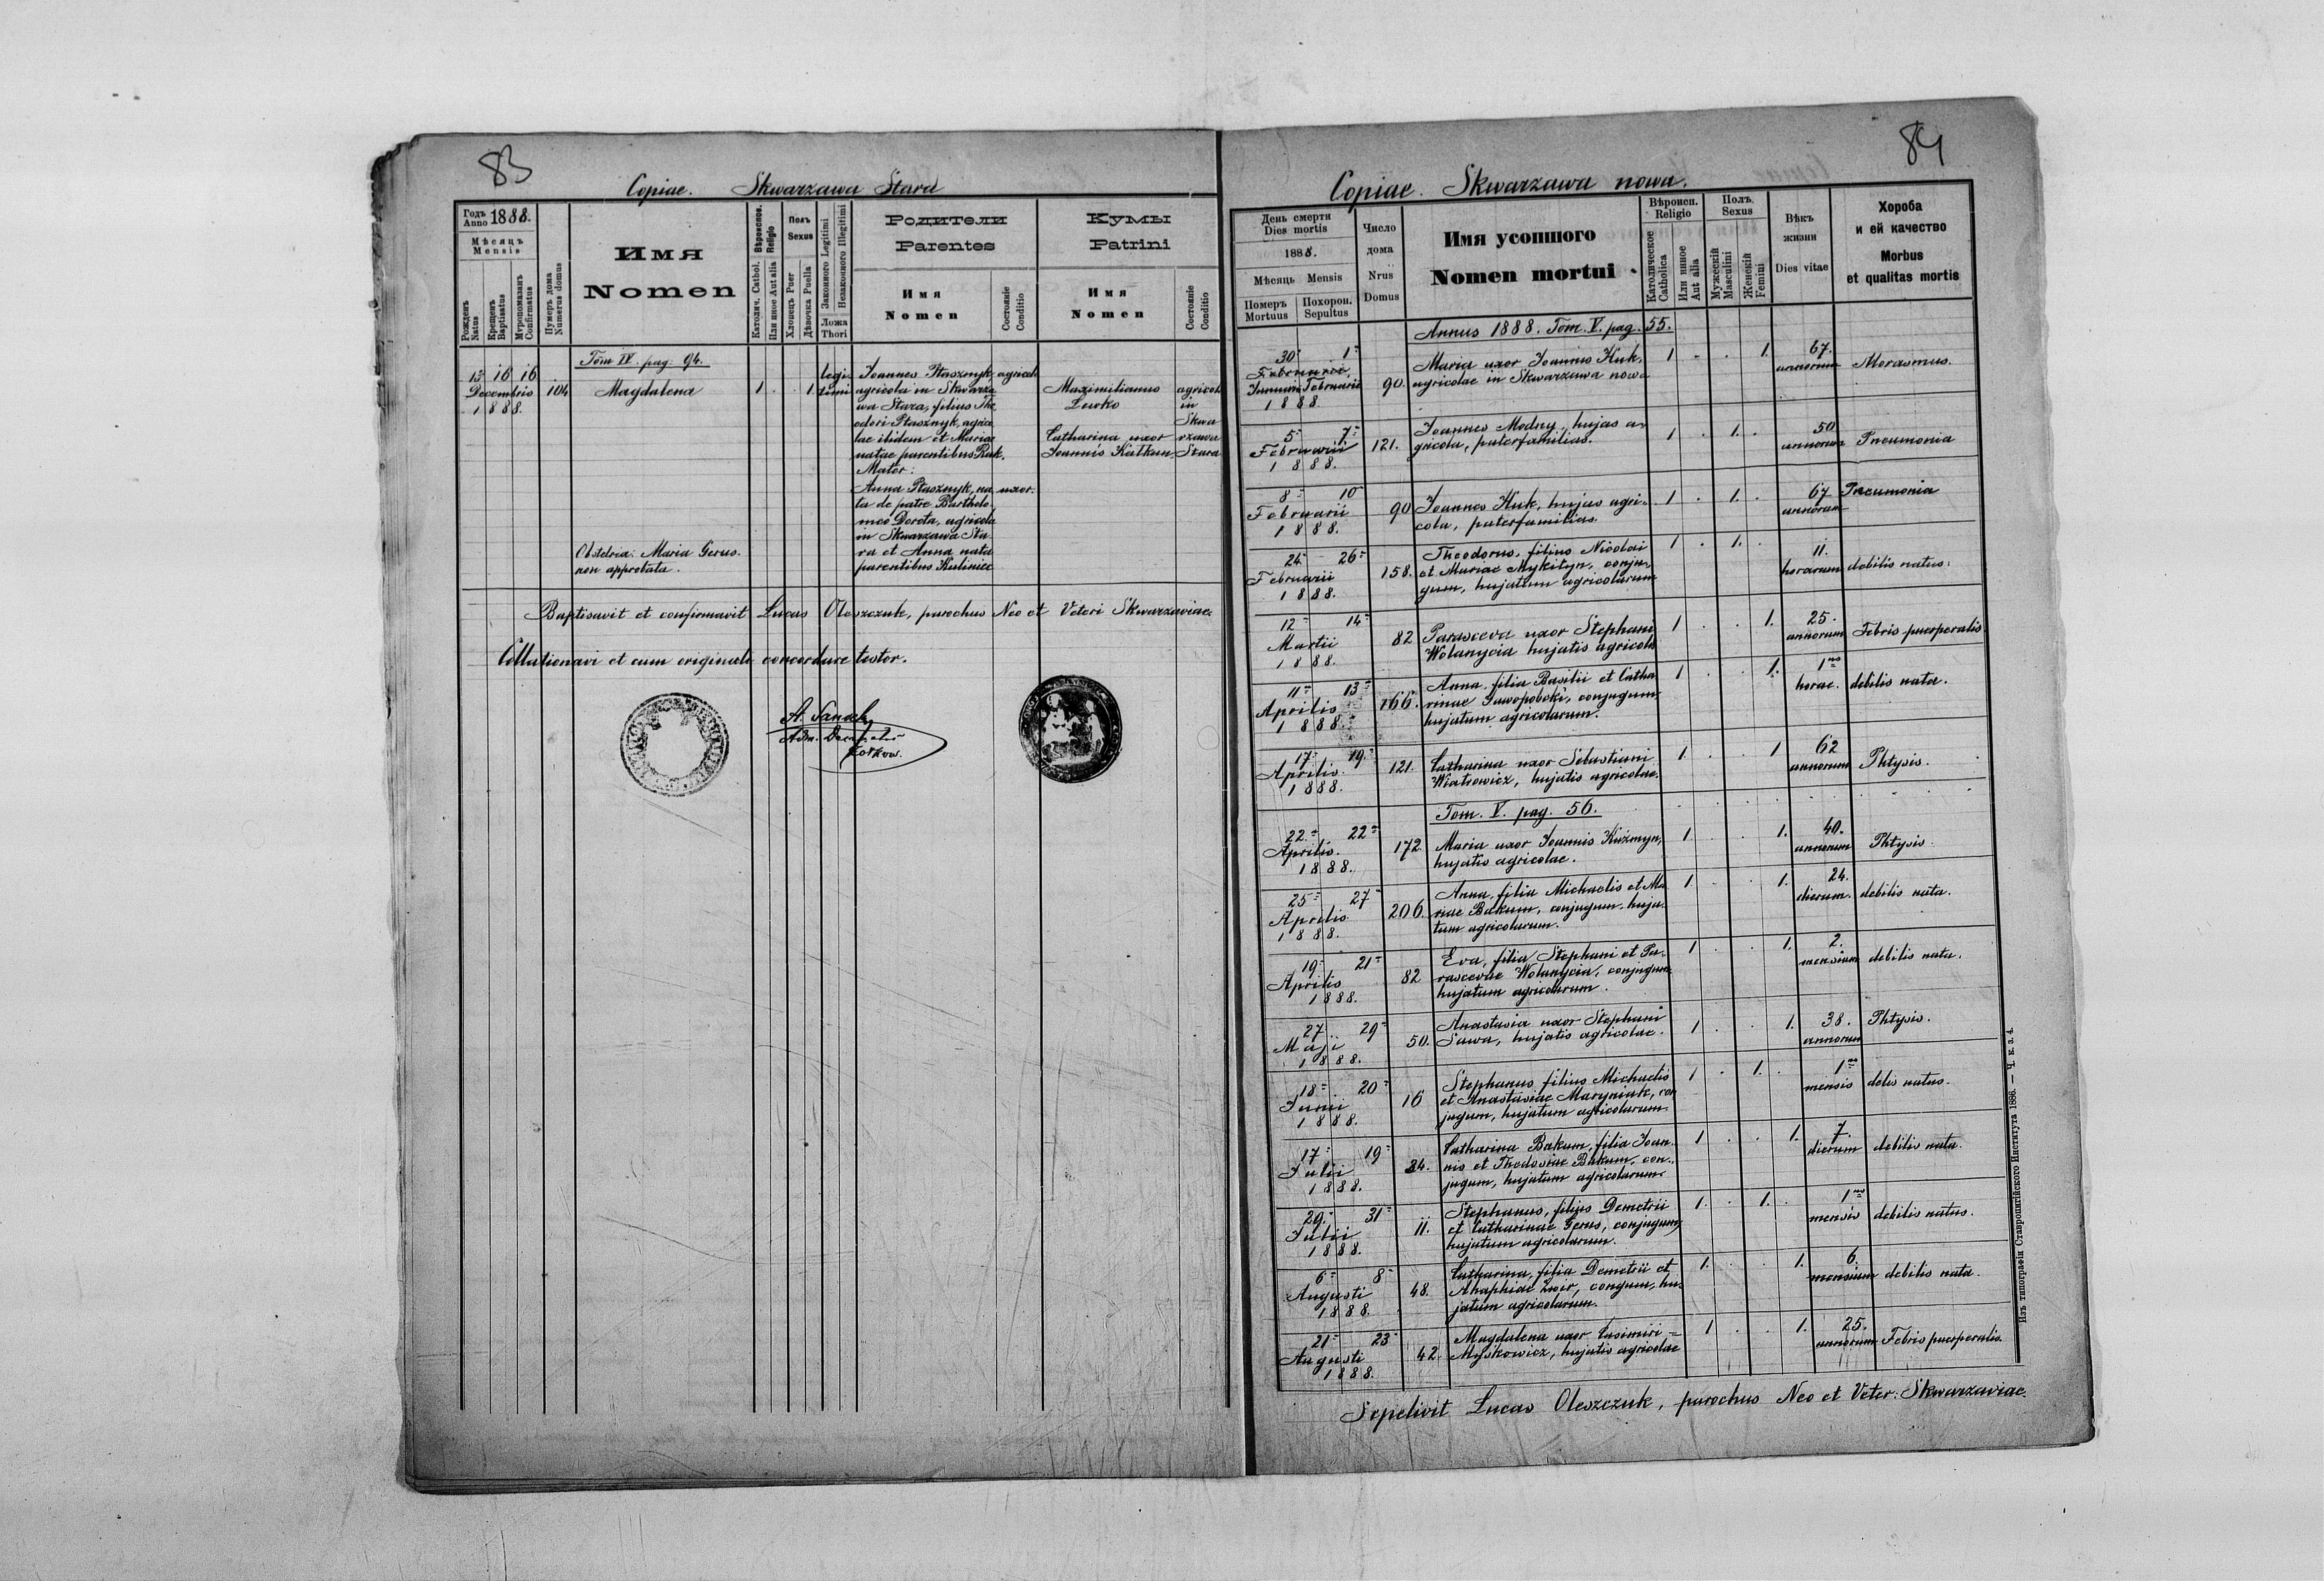 83
Copiae. Skwarzawa Stara
Годъ Anno 1888.
Мѣсяцъ Mensis
Рожденъ Natus
Крещенъ Baptisatus
Муропомазанъ Confirmatus
Нумеръ дома Numerus domus
Имя Nomen
Вѣроиспов. Religio
Католич. Cathol.
Или иное Aut alia
Полъ Sexus
Хлопецъ Puer
Дѣвочка Puella
Законного Legitimi
Незаконного Illegitimi
Ложа Thori
Родители Parentes
Имя Nomen
Состояніе Conditio
Кумы Patrini
Имя Nomen
Состояніе Conditio
Tom IV. pag. 94.
13 16 16
Decembris
1888.
104
Magdalena
1 . . 1.
legi
timi
Joannes Ptasznyk
agricola in Skwarza
wa Stara, filius The
odori Ptasznyk, agrico
lae ibidem et Mariae
natae parentibus Ruk.
Mater:
Anna Ptasznyk, na
ta de patre Bartholo
meo Dorota, agricola
in Skwarzawa Sta
ra et Anna nata
parentibus Kuliniec
agricola
uxor.
Maximilianus
Żurko
Catharina uxor
Joannis Kalkun
agricola
in
Skwa
rzawa
Stara
Obstetrix: Maria Gerus.
non approbata.
Baptisavit et confirmavit Lucas Oleszczuk, parochus Neo et Veteri Skwarzaviae.
Collationavi et cum originali concordare testor.
84
Copiae. Skwarzawa nowa.
День смерти Dies mortis
1888.
Мѣсяць Mensis
Померъ Mortuus
Похорон. Sepultus
Число дома Nrus Domus
Имя усопшого
Nomen mortui
Вѣроисп. Religio
Католическое Catholica
Или иное Aut alia
Полъ Sexus
Мужескій Masculini
Женскій Femini
Вѣкъ жизни Dies vitae
Хороба и ей качество
Morbus et qualitas mortis
Annus 1888. Tom. V. pag. 55.
30 1
Januarii Februarii
1888.
90.
Maria uxor Joannis Huk,
agricolae in Skwarzawa nowa
1 . . 1.
67. annorum
Marasmus.
5 7
Februarii
1888.
121.
Joannes Modny, hujas a-
gricola, paterfamilias.
1 . 1. .
50 annorum
Pneumonia
8 10
Februarii
1888.
90
Joannes Huk, hujas agri-
cola, paterfamilias.
1 . 1. .
67 annorum
Pneumonia
24 26
Februarii
1888.
158.
Theodorus, filius Nicolai
et Mariae Mykityn, conju-
gum, hujatum agricolarum
1 . 1. .
11. horarum
debilis natus.
12 14
Martii
1888.
82
Parasceva uxor Stephani
Wolanycia hujatis agricolae
1 . . 1.
25. annorum
Febris puerperalis.
11 13
Aprilis
1888.
166.
Anna filia Basilii et Catha
rinae conjugum,
hujatum agricolarum.
1 . . 1.
1 horae.
debilis nata.
17 19
Aprilis
1888.
121.
Catharina uxor Sebastiani
Wiatrowicz, hujatis agricolae.
1 . . 1
62 annorum
Phtysis.
Tom. V. pag. 56.
22 22
Aprilis.
1888.
172.
Maria uxor Joannis Kuźmyn,
hujatis agricolae.
1 . . 1.
40. annorum
Phtysis.
25 27
Aprilis
1888.
206.
Anna, filia Michaelis et Ma
riae Bakum, conjugum, huja
tum agricolarum.
1. . . 1.
24. dierum.
debilis nata.
19 21
Aprilis
1888.
82
Eva, filia Stephani et Pa-
rascevae Wolanycia, conjugum,
hujatum agricolarum.
1 . . 1.
2. mensium
debilis nata.
27 29
Maji
1888.
50.
Anastasia uxor Stephani
Sawa, hujatis agricolae.
1 . . 1.
38. annorum
Phtysis.
18 20
Junii
1888.
16
Stephanus filius Michaelis
et Anastasiae Maryniak, con
jugum, hujatum agricolarum.
1 . 1. .
1 mensis
delis natus.
17 19
Julii
1888.
84.
Catharina Bakum, filia Joan-
nis et Thodosiae Bakum, con-
jugum, hujatum agricolarum
1 . . 1.
7. dierum
debilis nata.
29 31
Julii
1888.
11.
Stephanus, filius Demetrii
et Catharinae Gerus, conjugum,
hujatum agricolarum.
1. . 1. .
1 mensis
debilis natus.
6 8
Augusti
1888.
48.
Catharina, filia Demetrii et
Ahaphiae conjum, hu-
jatum agricolarum.
1. . . 1.
6. mensium
debilis nata.
21 23
Augusti
1888.
42.
Magdalena uxor Casimiri
Myśkowicz, hujatis agricolae
1 . . 1.
25. annorum
Febris puerperalis.
Sepelivit Lucas Oleszczuk, parochus Neo et Veter: Skwarzaviae.
Изъ типографіи Ставропигійского Института 1886. — Ч. к. з. 4.